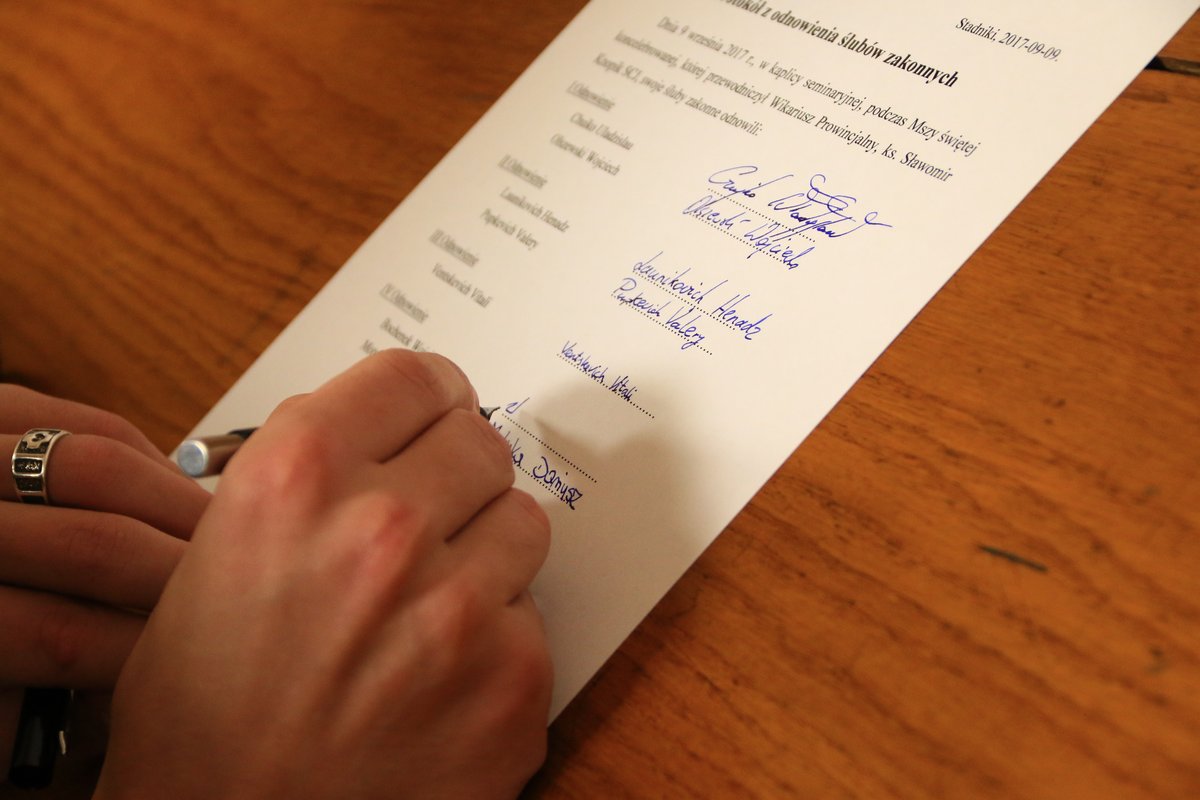 Stadniki, 2017-09-09.
z odnowienia ślubów zakonnych
Dnia 9 września 2017 r., w kaplicy seminaryjnej, podczas Mszy świętej
koncelebrowanej, której przewodniczył Wikariusz Prowincjalny, ks. Sławomir
Knopik SCJ, swoje śluby zakonne odnowili:
I Odnowienie
Chuko Uladzislau
Olszewski Wojciech Wojciech
II Odnowienie
Launikovich Henadz Launikovich Henadz
Papkevich Valery Valery
III Odnowienie
Ventskevich Vitali Ventskevich Vitali
IV Odnowienie
Dariusz